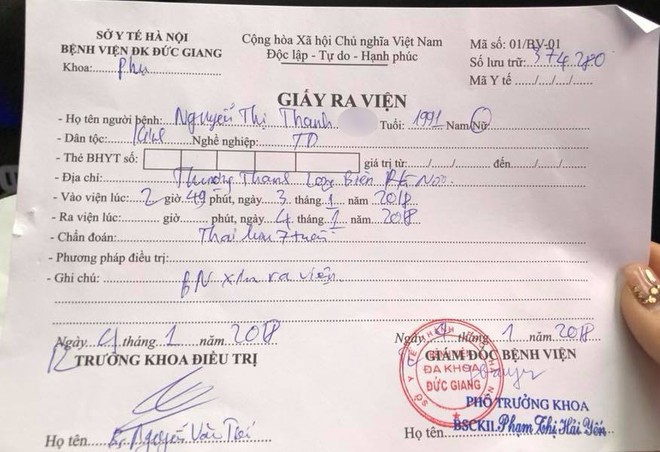 SỞ Y TẾ HÀ NỘI
BỆNH VIỆN ĐK ĐỨC GIANG
Khoa: Phụ
Cộng hòa Xã hội Chủ nghĩa Việt Nam
Độc lập - Tự do - Hạnh phúc
Mã số: 01/BV-01
Số lưu trữ: 374.280
Mã Y tế ...../...../...../.....
GIẤY RA VIỆN
- Họ tên người bệnh: Nguyễn Thị Thanh Tuổi: 1991 Nam/Nữ
- Dân tộc: Kinh Nghề nghiệp: TD
- Thẻ BHYT số: giá trị từ:...../...../..... đến...../...../.....
- Địa chỉ: Thượng Thanh Long Biên Hà Nội
- Vào viện lúc: 2 giờ 49 phút, ngày 3 tháng 1 năm 2018
- Ra viện lúc: giờ phút, ngày 4 tháng 1 năm 2018
- Chẩn đoán: Thai lưu 7 tuần
- Phương pháp điều trị:
- Ghi chú: BN xin ra viện
Ngày 4 tháng 1 năm 2018
TRƯỞNG KHOA ĐIỀU TRỊ
Họ tên Bs. Nguyễn Văn
Ngày 4 tháng 1 năm 2018
GIÁM ĐỐC BỆNH VIỆN
ĐA KHOA
ĐỨC GIANG
PHÓ TRƯỞNG KHOA
Họ tên BSCKII. Phạm Thị Hải Yến